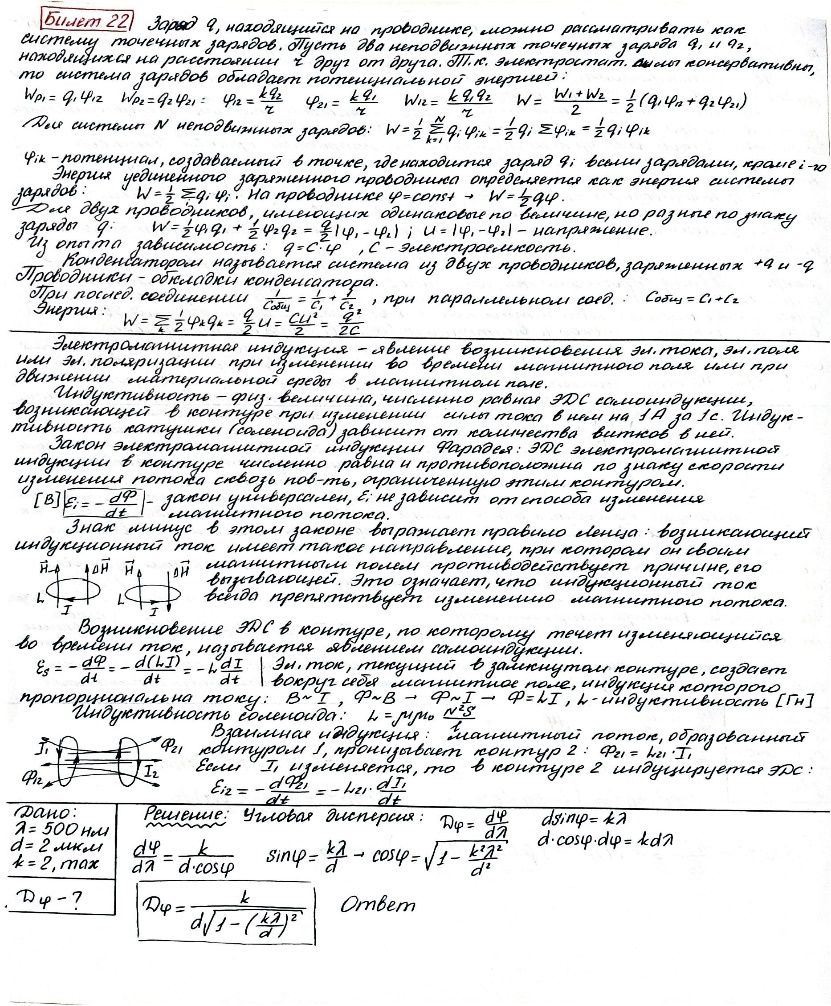 Билет 22 Заряд q, находящийся на проводнике, можно рассматривать как
систему точечных зарядов. Пусть два неподвижных точечных заряда q₁ и q₂,
находящихся на расстоянии r друг от друга. Т.к. электростат. силы консервативны,
то система зарядов обладает потенциальной энергией:
Wp₁ = q₁φ₁₂ Wp₂ = q₂φ₂₁ : φ₁₂ = kq₂/r φ₂₁ = kq₁/r W₁₂ = kq₁q₂/r W = (W₁+W₂)/2 = 1/2 (q₁φ₁₂ + q₂φ₂₁)
Для системы N неподвижных зарядов: W = 1/2 Σ(k=1, N) qᵢφᵢₖ = 1/2 qᵢ Σφᵢₖ = 1/2 qᵢφᵢₖ
φᵢₖ - потенциал, создаваемый в точке, где находится заряд qᵢ всеми зарядами, кроме i-го
Энергия уединённого заряженного проводника определяется как энергия системы
зарядов: W = 1/2 Σ qᵢφᵢ. На проводнике φ=const → W = 1/2 qφ.
Для двух проводников, имеющих одинаковые по величине, но разные по знаку
заряды q: W = 1/2 φ₁q₁ + 1/2 φ₂q₂ = q/2 |φ₁-φ₂| ; U = |φ₁-φ₂| - напряжение.
Из опыта зависимость: q = C·φ , C - электроемкость.
Конденсатором называется система из двух проводников, заряженных +q и -q
Проводники - обкладки конденсатора.
При послед. соединении 1/Cобщ = 1/C₁ + 1/C₂ , при параллельном соед.: Cобщ = C₁+C₂
Энергия: W = Σ 1/2 φₖqₖ = q/2 U = CU²/2 = q²/2C
Электромагнитная индукция - явление возникновения эл. тока, эл. поля
или эл. поляризации при изменении во времени магнитного поля или при
движении материальной среды в магнитном поле.
Индуктивность - физ. величина, численно равная ЭДС самоиндукции,
возникающей в контуре при изменении силы тока в нем на 1А за 1с. Индук-
тивность катушки (соленоида) зависит от количества витков в ней.
Закон электромагнитной индукции Фарадея: ЭДС электромагнитной
индукции в контуре численно равна и противоположна по знаку скорости
изменения потока сквозь пов-ть, ограниченную этим контуром.
[В] Ɛᵢ = - dФ/dt - закон универсален, Ɛᵢ не зависит от способа изменения
магнитного потока.
Знак минус в этом законе выражает правило Ленца: возникающий
индукционный ток имеет такое направление, при котором он своим
H ΔH H ΔH магнитным полем противодействует причине, его
вызывающей. Это означает, что индукционный ток
L I L I всегда препятствует изменению магнитного потока.
Возникновение ЭДС в контуре, по которому течет изменяющийся
во времени ток, называется явлением самоиндукции.
Ɛs = - dФ/dt = - d(LI)/dt = -L dI/dt | Эл. ток, текущий в замкнутом контуре, создает
вокруг себя магнитное поле, индукция которого
пропорциональна току: B~I , Ф~B → Ф~I → Ф=LI , L-индуктивность [Гн]
Индуктивность соленоида: L = μμ₀ N²S/l
Взаимная индукция: магнитный поток, образованный
I₁ Ф₂₁ контуром 1, пронизывает контур 2: Ф₂₁ = L₂₁·I₁
Ф₁₂ I₂ Если I₁ изменяется, то в контуре 2 индуцируется ЭДС:
Ɛᵢ₂ = - dФ₂₁/dt = -L₂₁· dI₁/dt
Дано:
λ = 500 нм
d = 2 мкм
k = 2, max
Dφ - ?
Решение: Угловая дисперсия: Dφ = dφ/dλ dsinφ = kλ
d·cosφ·dφ = kdλ
dφ/dλ = k/(d·cosφ) sinφ = kλ/d → cosφ = √(1 - k²λ²/d²)
Dφ = k/(d√(1-(kλ/d)²)) Ответ